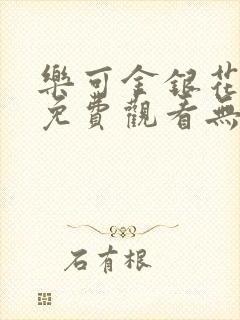 樂可金銀花
免費觀看無
石有根